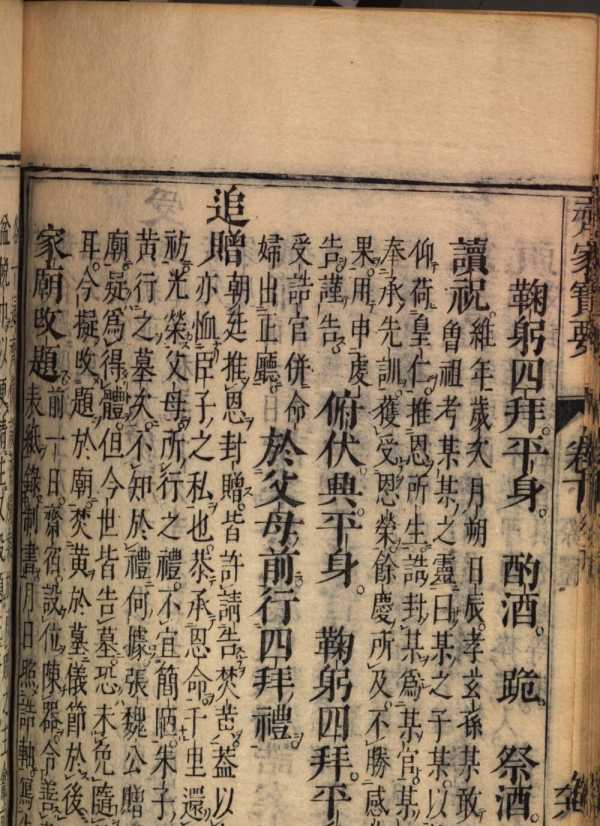 齊家寶要
卷下
鞠躬四拜平身。酌酒。跪。祭酒。
讀祝。維年歲次月朔日辰。孝玄孫某敢
曾祖考某某之靈曰。某之子某。以
仰荷皇仁。推恩所生。誥封某為某官。某
奉承先訓。獲受恩榮。餘慶所及。不勝感
果。用申虔
告。謹告。俯伏興平身。鞠躬四拜平
受誥官併命
婦出正廳。於父母前行四拜禮。
追贈朝廷推恩封贈。皆許請告焚黃。蓋以
亦恤臣子之私也。恭承恩命。千里還
祊。光榮父母。所行之禮。不宜簡陋。朱子
黃行之墓次。不知於禮何據。張魏公贈
廟。疑為得體。但今世皆告墓。恐未免隨
耳。今擬改題於廟。焚黃於墓。儀節於後
家廟改題前一日。齋宿。設位陳器。令善
表紙錄制書。月日照誥軸寫